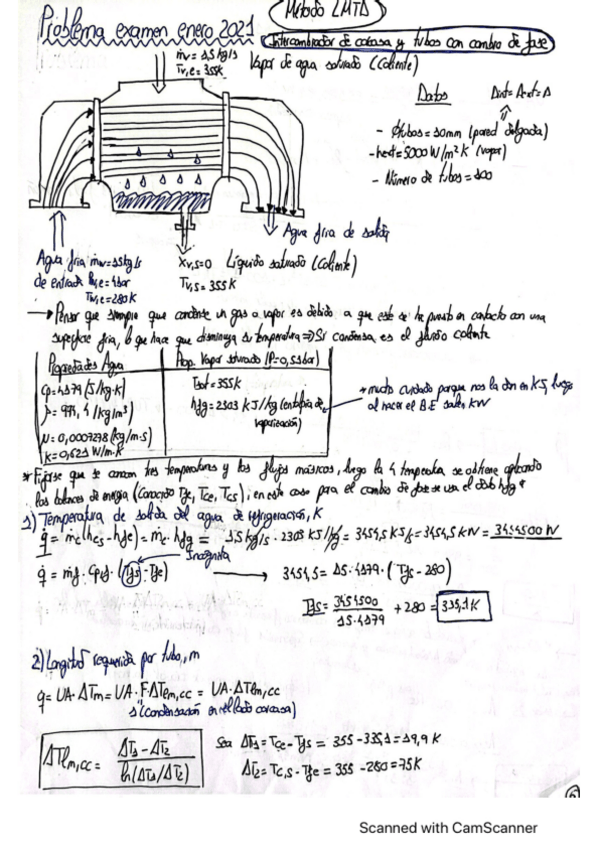 Método LMTD
Problema examen enero 2021
Intercambiador de carcasa y tubos con cambio de fase
ṁv = 1,5 kg/s
Tv,e = 355K
Vapor de agua saturado (Caliente)
Datos
Aint = Aext = A
- φtubos = 10mm (pared delgada)
- hext = 5000 W/m²K (vapor)
- Número de tubos = 100
Agua fría de salida
Agua fría ṁw = 15 kg/s
de entrada Pw,e = 1bar
Tw,e = 280K
Xv,s = 0 Líquido saturado (Caliente)
Tv,s = 355K
→ Pensar que siempre que condense un gas a vapor es debido a que este se ha puesto en contacto con una
superficie fría, lo que hace que disminuya su temperatura ⇒ Si condensa es el fluido caliente
Propiedades Agua
Prop. Vapor saturado (P=0,51bar)
Cp = 4179 (J/kg·K)
ρ = 994,4 (kg/m³)
μ = 0,0007278 (kg/m·s)
K = 0,621 W/m·K
Tsat = 355K
hfg = 2303 KJ/kg (entalpia de
vaporización)
* mucho cuidado porque nos la dan en KJ, luego
al hacer el B.E sale KW
* Fijarse que se conocen tres temperaturas y los flujos másicos, luego la 4 temperatura se obtiene aplicando
los balances de energía (Conocido Tfe, Tce, Tcs), en este caso para el cambio de fase se usa el dato hfg *
1) Temperatura de salida del agua de refrigeración, K
q̇ = ṁc(hcs - hfe) = ṁc · hfg = 1,5 kg/s · 2303 KJ/kg = 3454,5 KJ/s = 3454,5 KW = 3454500 W
Incógnita
q̇ = ṁf · Cpf · (Tfs - Tfe) → 3454,5 = 15 · 4179 · (Tfs - 280)
Tfs = 3454500 / 15·4179 + 280 = 335,1 K
2) Longitud requerida por tubo, m
q = UA·ΔTm = UA·FΔTlm,cc = UA·ΔTlm,cc
1 (Condensación en el lado carcasa)
ΔTlm,cc = ΔT1 - ΔT2 / ln(ΔT1/ΔT2)
Sea ΔT1 = Tce - Tfs = 355 - 335,1 = 19,9 K
ΔT2 = Tc,s - Tfe = 355 - 280 = 75K
Scanned with CamScanner